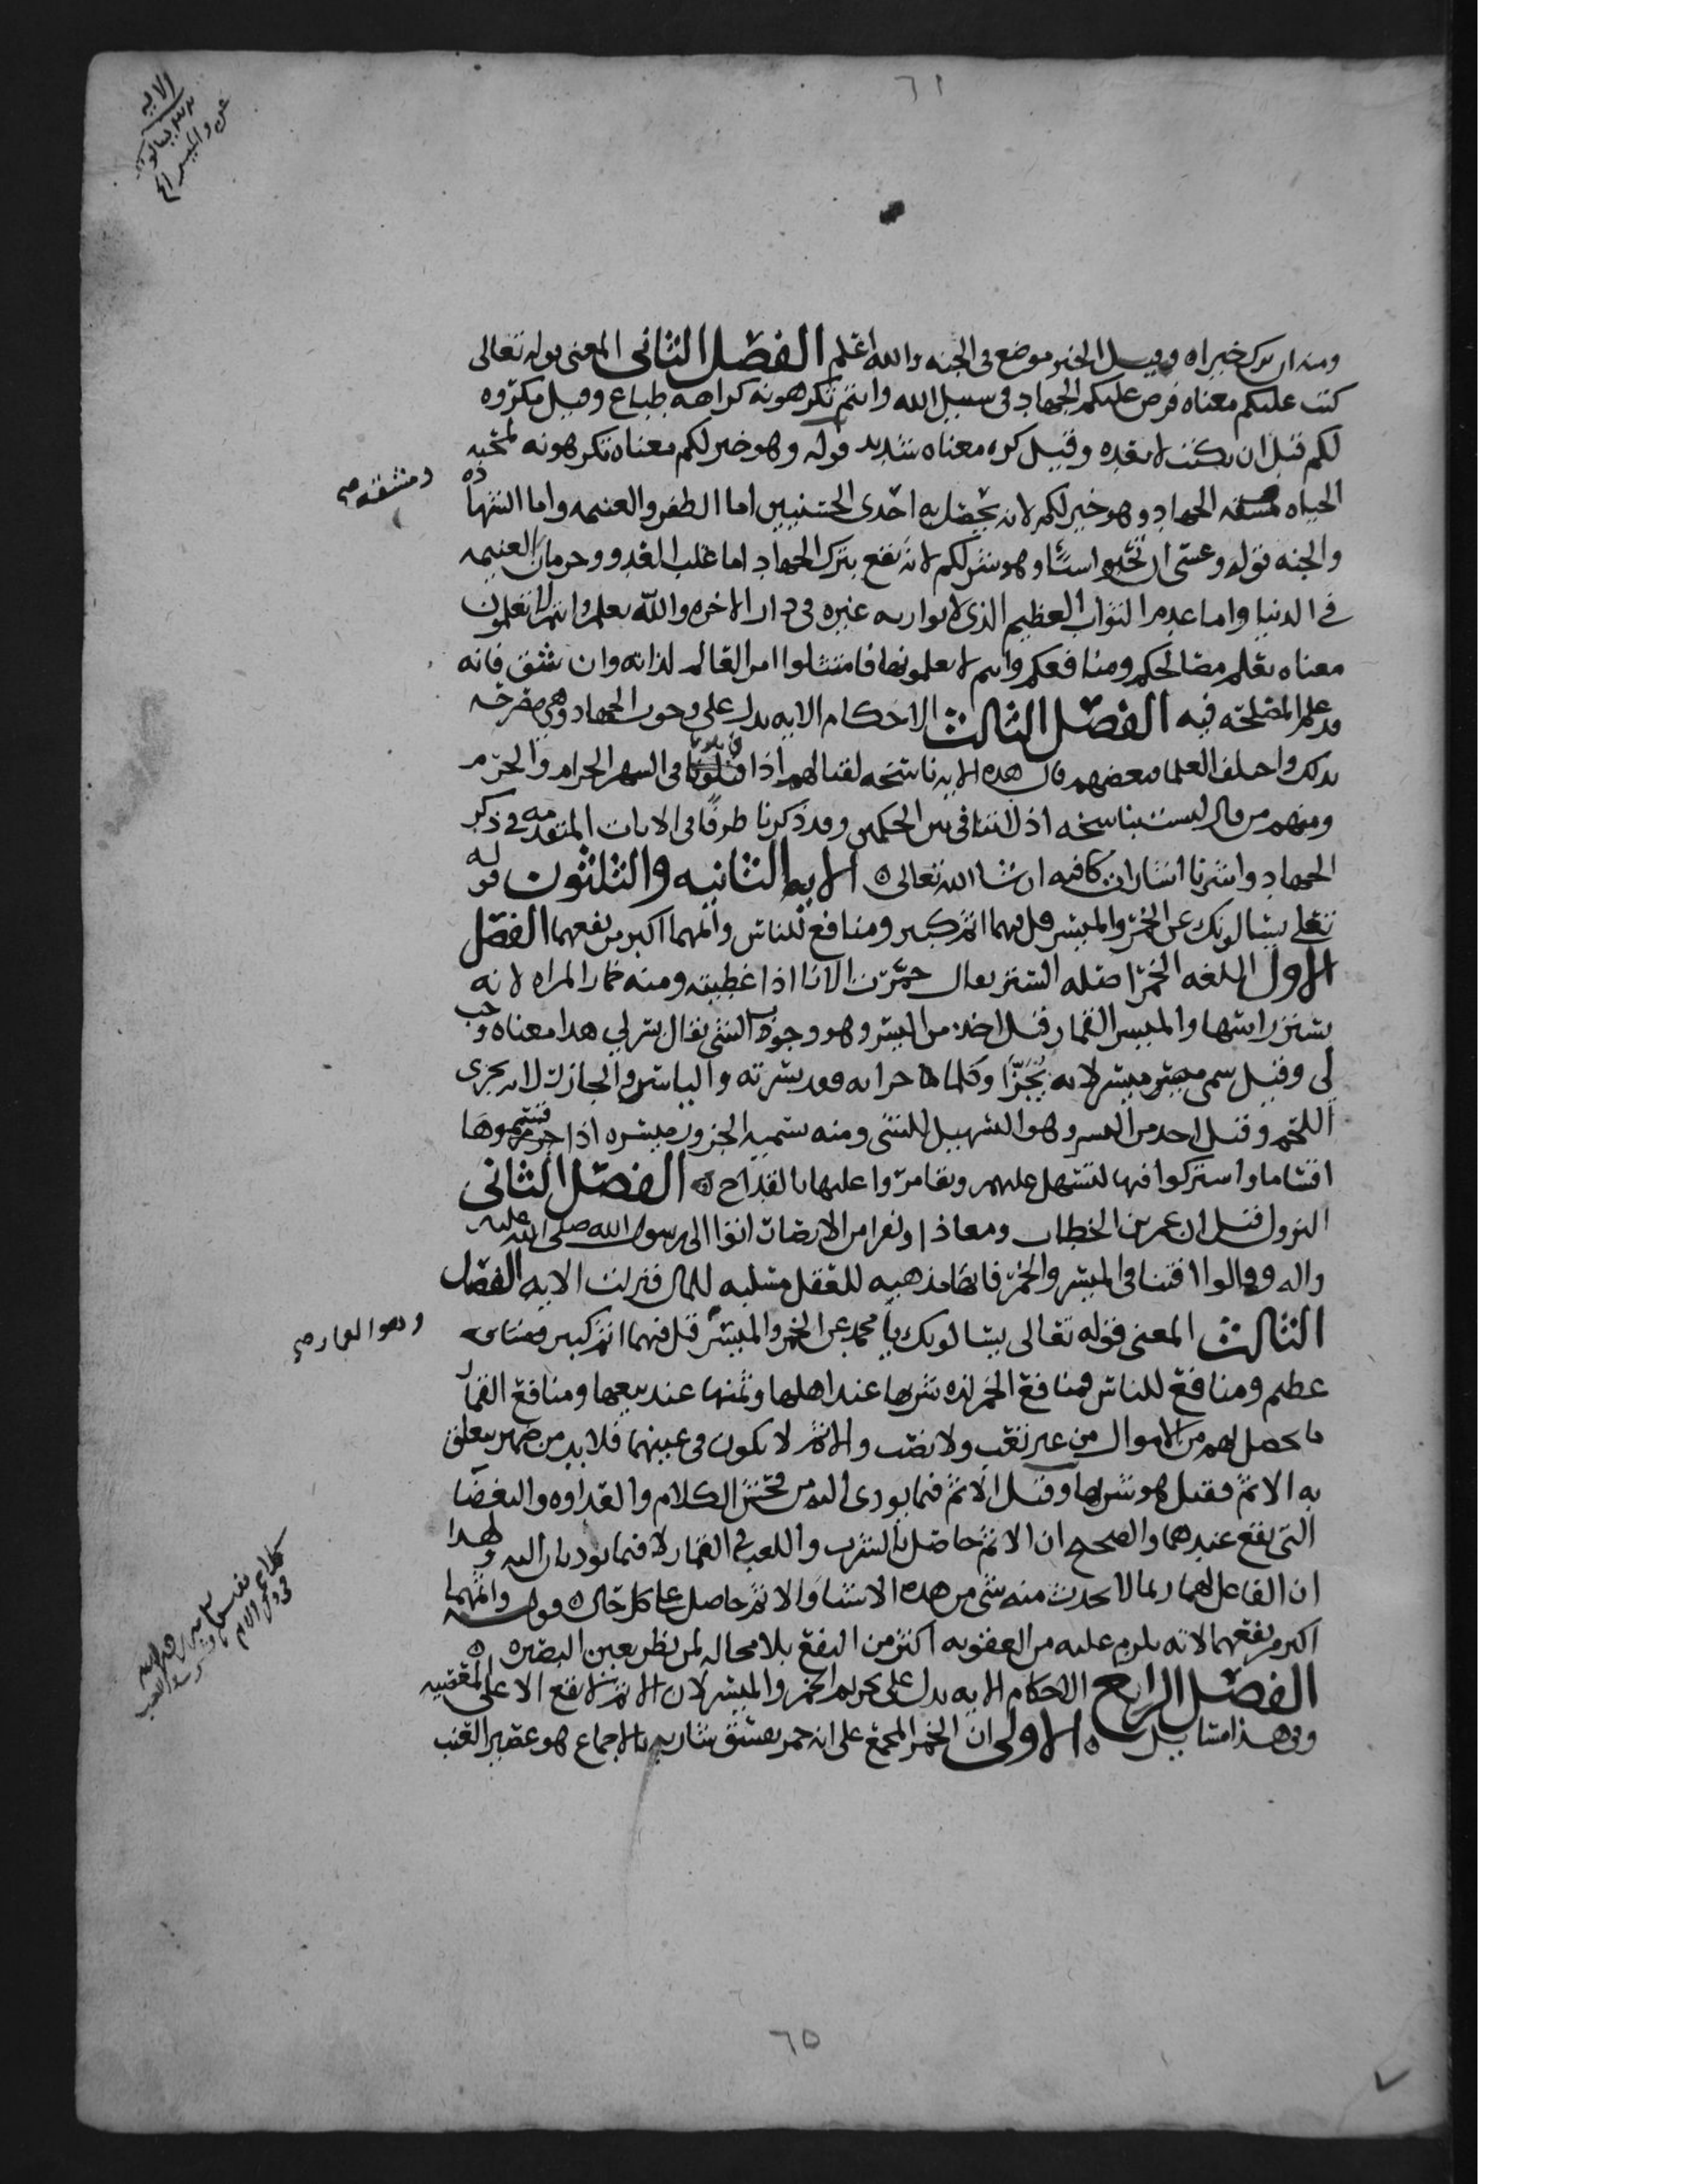 ٦١
الايه
عن والميسر الخ
ومنه ان ترك خيرا ه وقيل الخير موضع في الجنه والله اعلم الفصل الثاني المعنى قوله تعالى
كتب عليكم معناه فرض عليكم الجهاد في سبيل الله وانتم تكرهونه كراهه طباع وقيل مكروه
لكم قبل ان يكتب لا بعده وقيل كره معناه شديد قوله وهو خير لكم معناه تكرهونه لمحبه
الحياه لمشقه الجهاد وهو خير لكم لانه يحصل به احدى الحسنيين اما الظفر والغنيمه واما الشهاده
ومشقه صح
والجنه قوله وعسى ان تحبوا شيئا وهو شر لكم لانه يقع بترك الجهاد اما غلب العدو وحرمان الغنيمه
في الدنيا واما عدم الثواب العظيم الذي لا يوازيه غيره في دار الاخره والله يعلم وانتم لا تعلمون
معناه يعلم مصالحكم ومنافعكم وانتم لا تعلمونها فامتثلوا امر العالم لذاته وان شق فانه
قد علم المصلحه فيه الفصل الثالث الاحكام الايه تدل على وجوب الجهاد وهي مصرحه
بذلك واختلف العلما فبعضهم قال هذه الايه ناسخه لقتالهم اذا قاتلونا في الشهر الحرام والحرم
ومنهم من قال ليست بناسخه اذ لا تنافي بين الحكمين وقد ذكرنا طرفا في الايات المتقدمه في ذكر
الجهاد واشرنا اشارات كافيه ان شا الله تعالى ه الايه الثانيه والثلثون قوله
تعلى يسالونك عن الخمر والميسر قل فيهما اثم كبير ومنافع للناس واثمهما اكبر من نفعهما الفصل
الاول اللغه الخمر اصله الستر يقال خمرت الانا اذا غطيته ومنه خمار المراه لانه
يستر راسها والميسر القمار قيل اخذ من اليسر وهو وجوب الشي يقال يسر لي هذا معناه وجب
لي وقيل سمي ميسر لانه يجزا وكلما جزاته فقد يسرته والياسر والجازر لانه يجزى
اللحم وقيل اخذ من اليسر وهو التسهيل للشي ومنه سميه الجزور ميسره اذا قسموها
اقساما واشتركوا فيها لتسهل عليهم وتقامروا عليها بالقداح ه الفصل الثاني
النزول قيل ان عمر بن الخطاب ومعاذ ا ونفرا من الانصار اتوا الى رسول الله صلى الله عليه
واله وقالوا افتنا في الميسر والخمر فانها مذهبه للعقل مسلبه للمال فنزلت الايه الفصل
الثالث المعنى قوله تعالى يسالونك يا محمد عن الخمر والميسر قل فيهما اثم كبير معناه
وهو القمار صح
عظيم ومنافع للناس فمنافع الخمر لذه شربها عند اهلها وثمنها عند بيعها ومنافع القمار
ما يحصل لهم من الاموال من غير تعب ولا نصب والاثم لا يكون في عينهما فلا بد من ضمير يتعلق
به الاثم فقيل هو شربها وقيل الاثم فيما يودي اليه من فحش الكلام والعداوه والبغضا
التي تقع عندهما والصحيح ان الاثم حاصل بالشرب واللعب في القمار لا فيما يوديان اليه ولهذا
ان الفاعل لهما ربما لا يحدث منه شي من هذه الاشيا والاثم حاصل على كل حال ه قوله واثمهما
اكبر من نفعهما لانه يلزم عليه من العقوبه اكثر من النفع بلا محاله لمن نظر بعين البصيره ه
الفصل الرابع الاحكام الايه تدل على تحريم الخمر والميسر لان الاثم لا يقع الا على المعصيه
وفي هذا مسايل ه الاولى ان الخمر المجمع على انه خمر يفسق شاربه بالاجماع هو عصير العنب
٦٥